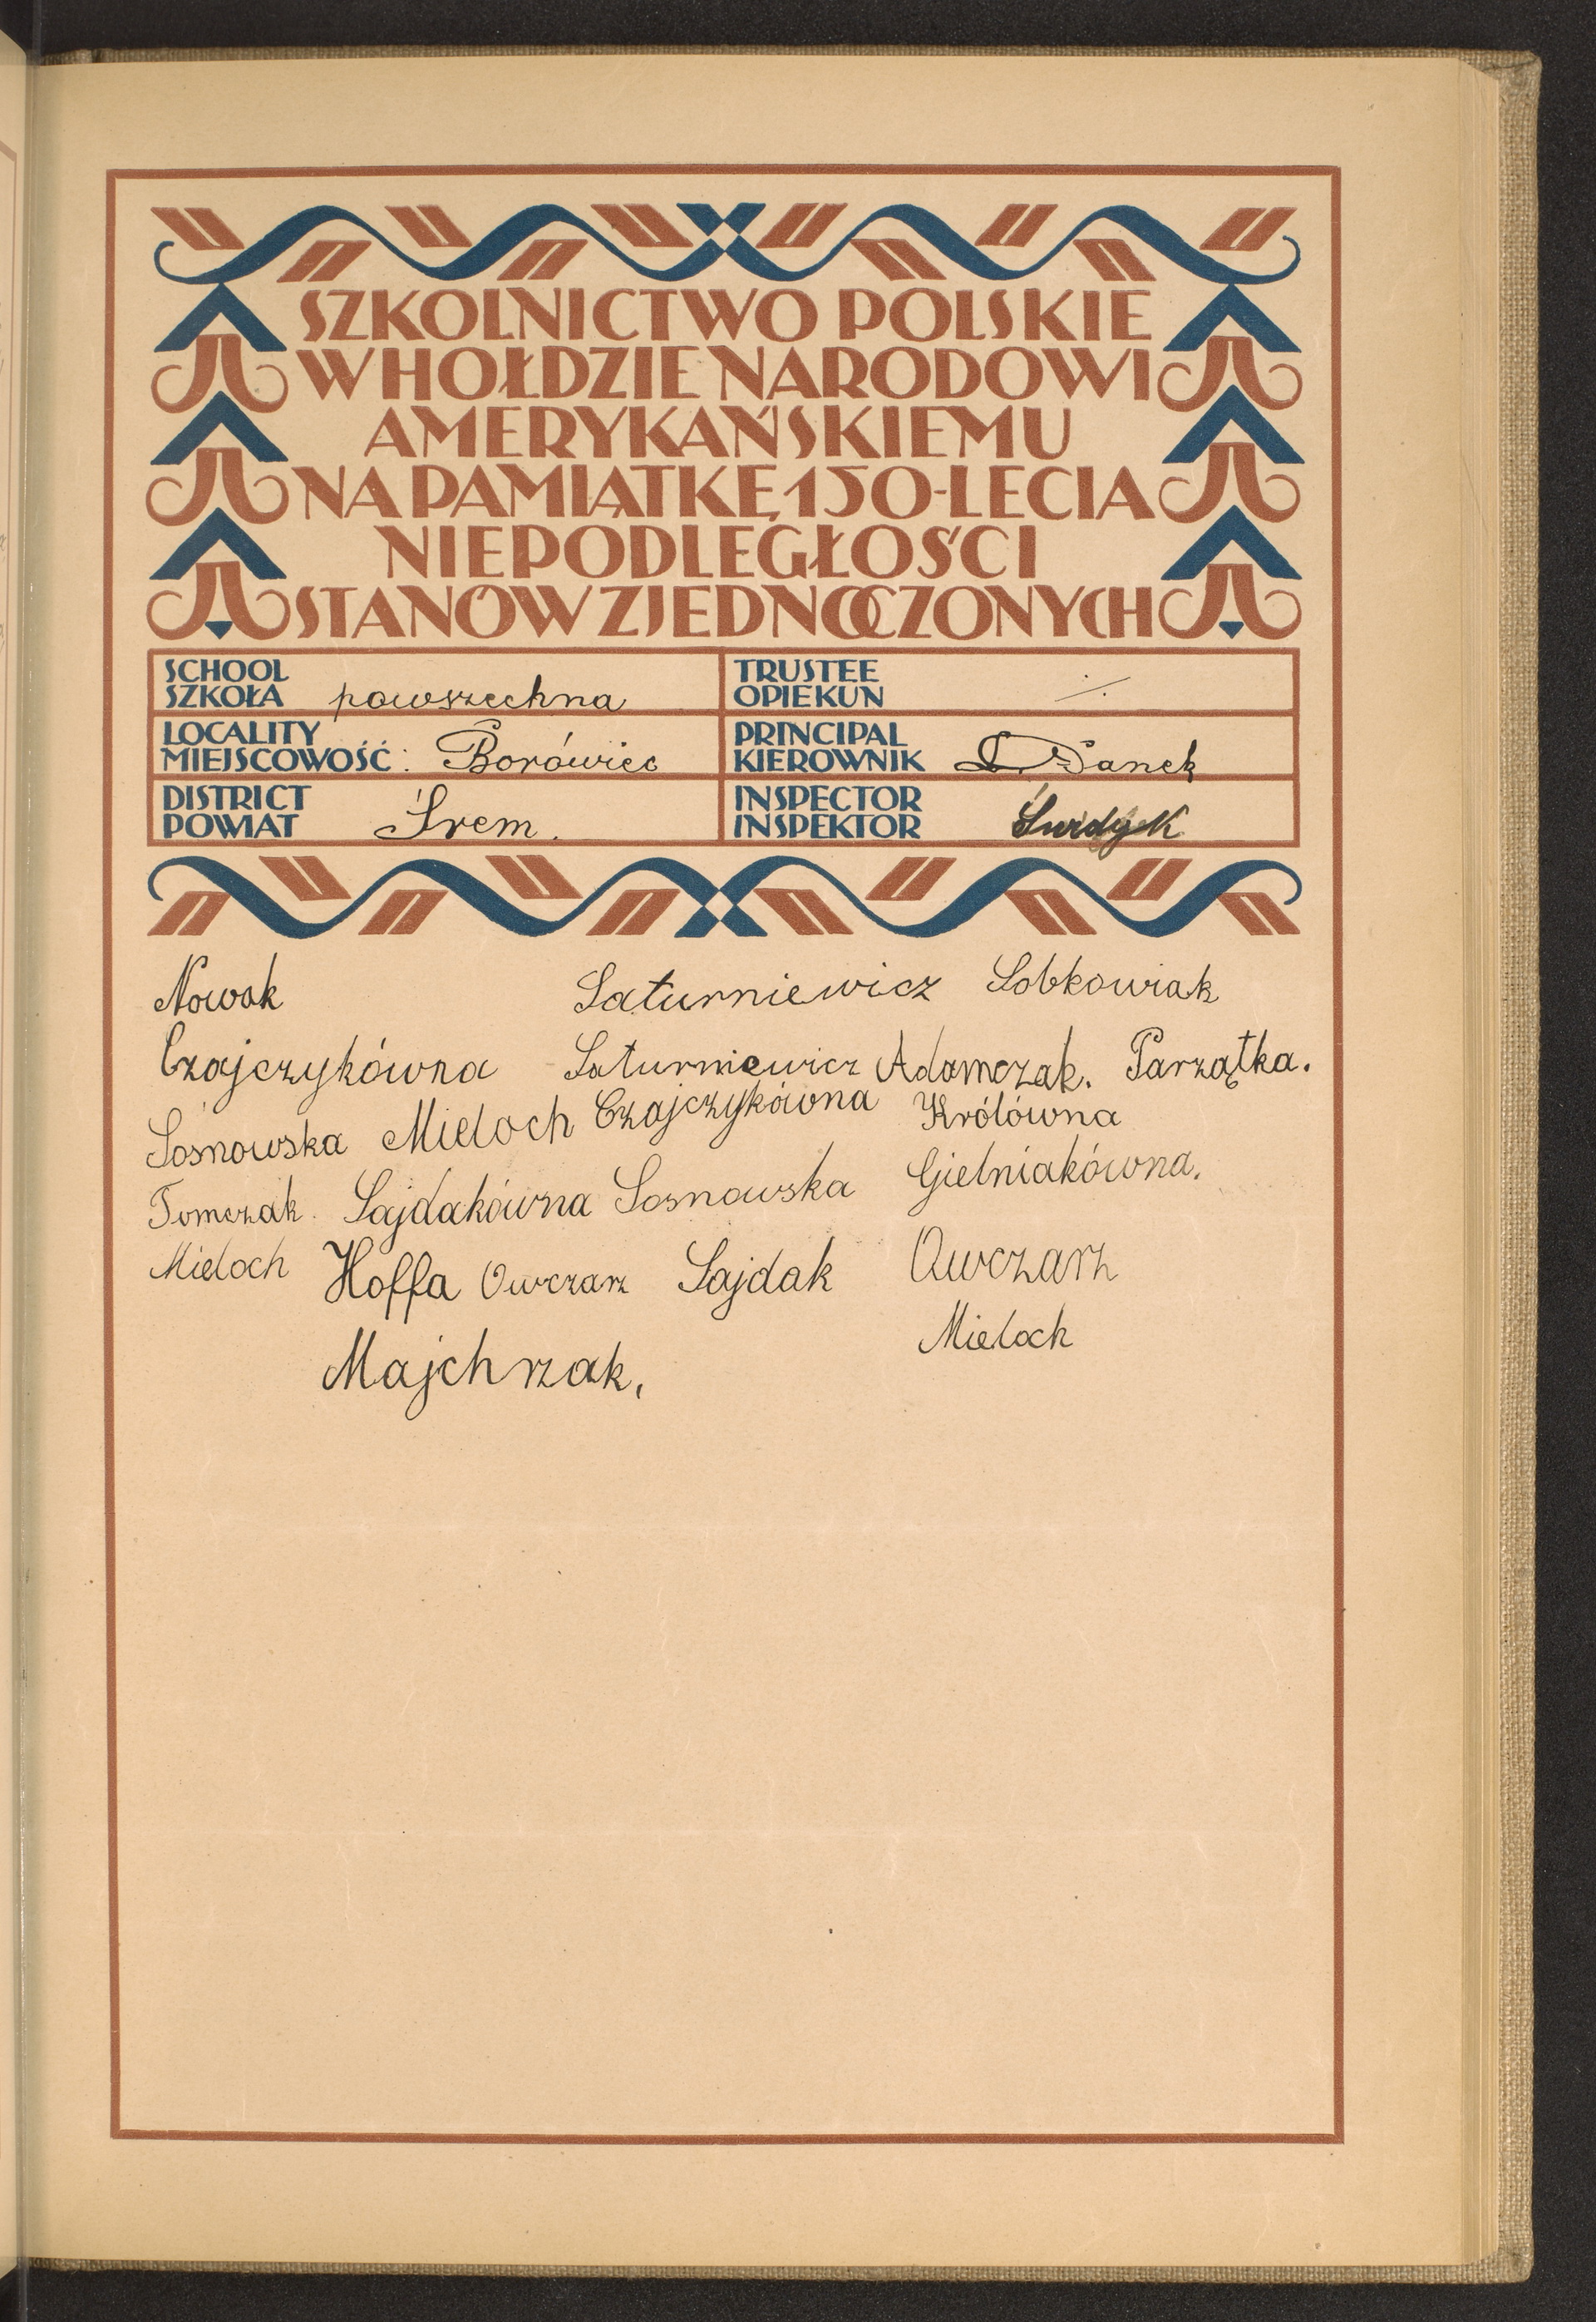 SZKOLNICTWO POLSKIE
W HOŁDZIE NARODOWI
AMERYKAŃSKIEMU
NA PAMIĄTKĘ 150-LECIA
NIEPODLEGŁOŚCI
STANÓW ZJEDNOCZONYCH
SCHOOL
SZKOŁA powszechna
TRUSTEE
OPIEKUN
LOCALITY
MIEJSCOWOŚĆ: Borówiec
PRINCIPAL
KIEROWNIK Danek
DISTRICT
POWIAT Śrem.
INSPECTOR
INSPEKTOR
Nowak Saturniewicz Sobkowiak
Czajczykówna Saturniewicz Adamczak. Parzątka.
Sosnowska Mieloch Czajczykówna Królówna
Tomczak. Sajdakówna Sosnowska Gielniakówna.
Mieloch Hoffa Owczarz Sajdak Owczarz
Majchrzak, Mieloch